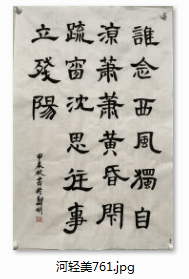 誰念西風獨自
涼蕭蕭黃昏閉
疏窗沈思往事
立殘陽
甲辰秋
河轻美761.jpg